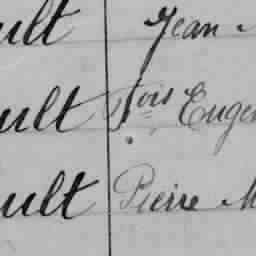 ult Jean
ult Fois Eugen
ult Pierre M